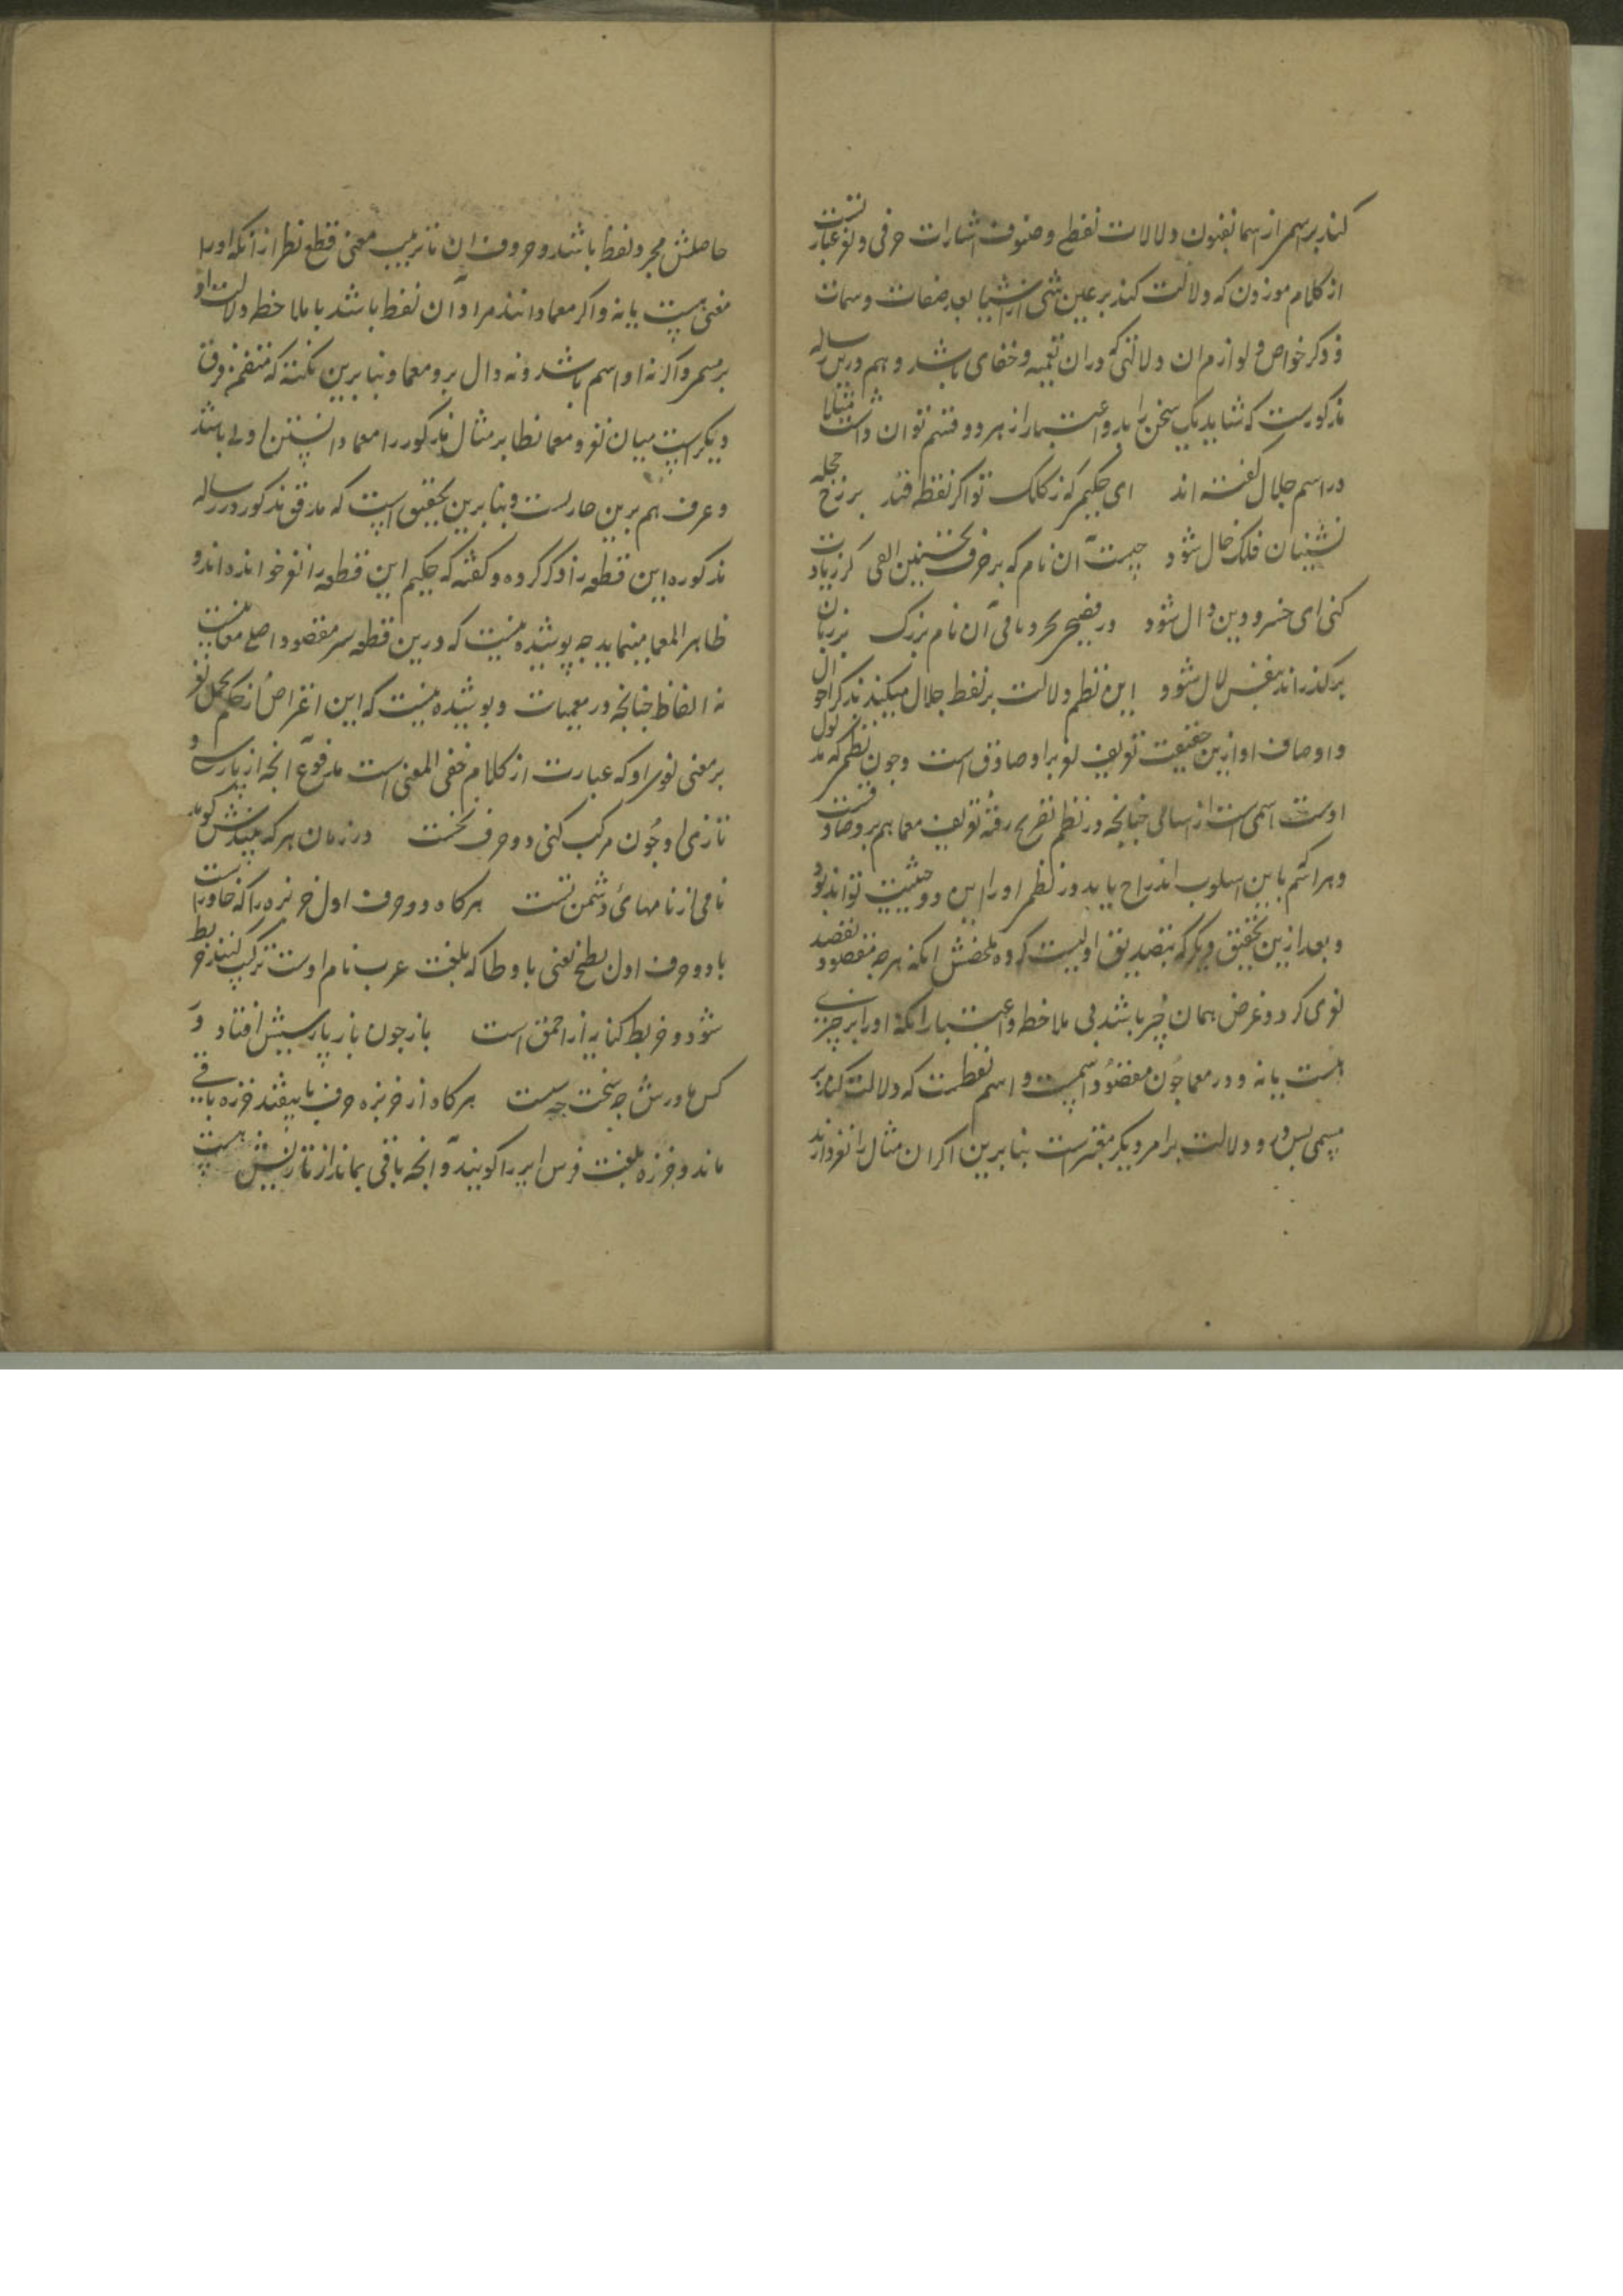 کند بر اسمی از اسما بفنون دلالات لفظی و صنوف اشارات حرفی و لغز عبارتست
از کلام موزون که دلالت کند بر عین شئ از اشیا بصفات و سمات
و ذکر خواص و لوازم ان دلالتی که در ان تعمیه و خفای باشد و هم در رساله
مذکورست که شاید یک سخن را بدو اعتبار از هر دو قسم توان داشت مثلا
در اسم جلال کفته اند ای حکیمی که ز کلک تو اکر نقطه فتد بر رخ حجله
نشینان فلک خال شود چیست آن نام که بر حرف نخستین الفی کر زیادت
کنی ای خسرو دین دال شود ور فصیحی بحروف باقی آن نام بزرک بر زبان
بر کذراند بنفس لال شود این نظم دلالت بر لفظ جلال میکند بذکر احوال
و اوصاف او ازین حقیقت تعریف لغز براو صادق است و چون نظمی که مدلول
اوست اسمی است از اسامی چنانچه در نظم تصریح رفته تعریف معما هم برو صادقست
و هر اسم باین اسلوب اندراج یابد در نظم او را این دو حیثیت تواند بود
و بعد ازین تحقیق دیکر که بتصدیق اولیست کرده ملخصش انکه هرچه مقصود بقصد
لغوی کردد غرض همان چیز باشد بی ملاحظه و اعتبار انکه او را بر چیزی
هست یا نه و در معما چون مقصود اسمیست و اسم لفظیست که دلالت کند بر
مسمی پس درو دلالت بر امر دیکر معتبرست بنا برین اکر ان مثال را لغز دارند
حاصلش مجرد لفظ باشد و حروف ان تا ترتیب معنی قطع نظر از آنکه او را
معنی هست یا نه و اکر معما دانند مراد آن لفظ باشد با ملاحظه دلالت او
بر مسمی و الا نه او اسم باشد و نه دال برو معما و بنا برین نکته که متضمن فرق
دیکرست میان لغز و معما نطایر مثال مذکور را معما دانستن اولی باشد
و عرف هم برین جاریست و بنا برین تحقیق است که مدقق مذکور در رساله
مذکوره این قطعه را ذکر کرده و کفته که حکیم این قطعه را لغز خوانده اند و
ظاهر المعما مینماید چه پوشیده نیست که درین قطعه سر مقصود اصلی معانیست
نه الفاظ چنانچه در معمیات و پوشیده نیست که این اعتراض از حکیم بحمل لغز
بر معنی لغوی او که عبارت از کلام خفی المعنی است مدفوع آنچه از پارسی و
تازی او چون مرکب کنی دو حرف نخست در زمان هر که بیندش کوید
نامی از نامهای دشمن تست هر کاه دو حرف اول خربزه را که خا و راست
با دو حرف اول بطیخ یعنی با و طا که بلغت عرب نام اوست ترکیب کنند خربط
شود و خربط کنایه از احمق است باز چون باز پارسیش افتاد و
کس ماورش چه سخت چه سست هر کاه از خربزه حرف با بیفتد خرزه باقی
ماند و خرزه بلغت فرس ایر را کویند و آنچه باقی بماند از تازیش هست